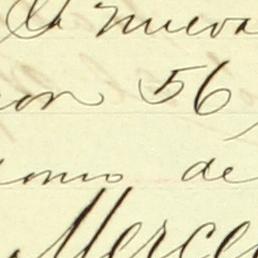 la nueva
on 56
onio de
Merce